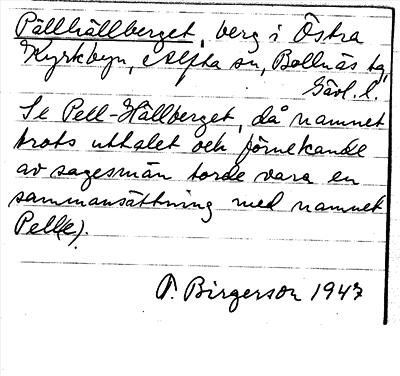 Pällhällberget, berg i Östra
Kyrkbyn, Alfta sn, Bollnäs tg,
Gävl. l.
Se Pell-Hällberget, då namnet
trots uttalet och förnekande
av sagesmän torde vara en
sammansättning med namnet
Pell(e).
P. Birgerson 1947